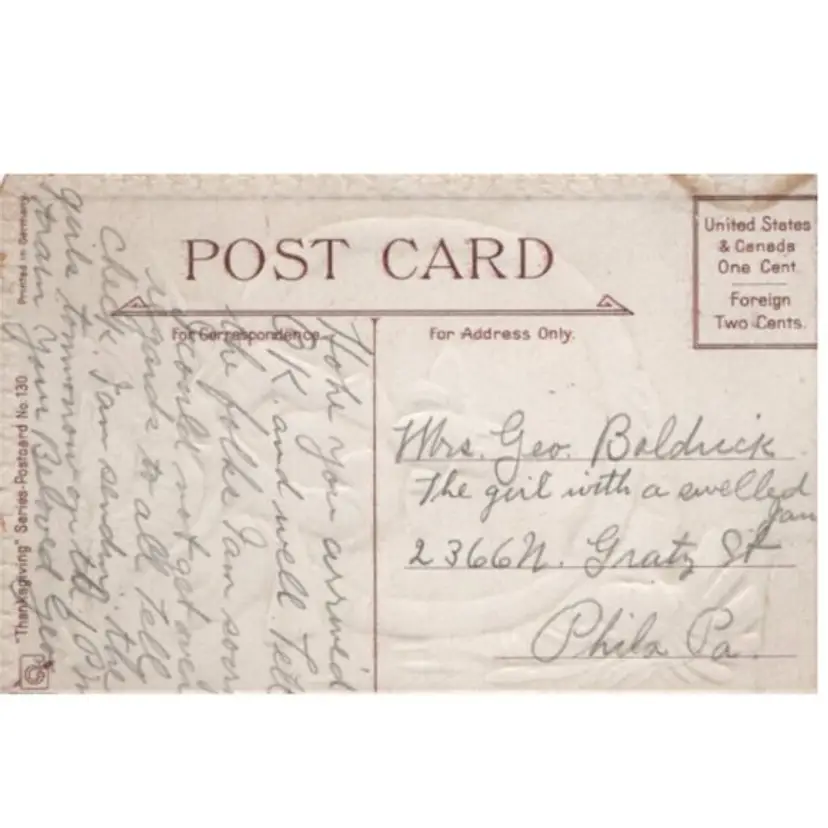 POST CARD
United States
& Canada
One Cent
Foreign
Two Cents.
For Correspondence.
For Address Only.
Hope you arrived
O.K. and well Tell
the folks I am sorry
I could not get over
regards to all Tell
Chick. I am sending the
girls tomorrow on the
train Your Beloved Geo
Mrs. Geo. Boldrick
The girl with a swelled
jaw
2366 N. Gratz St
Phila Pa.
"Thanksgiving" Series-Postcard No. 130
Printed in Germany